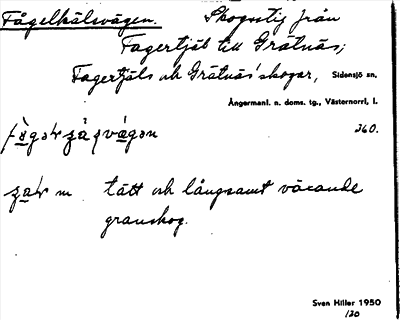 Fågelkälsvägen. Skogsstig från
Fagertjäl till Gråtnäs;
Fagertjäls och Gråtnäs' skogar, Sidensjö sn.
Ångermanl. n. doms. tg., Västernorrl, l.
360.
m. tätt och långsamt växande
granskog.
Sven Hiller 1950
120